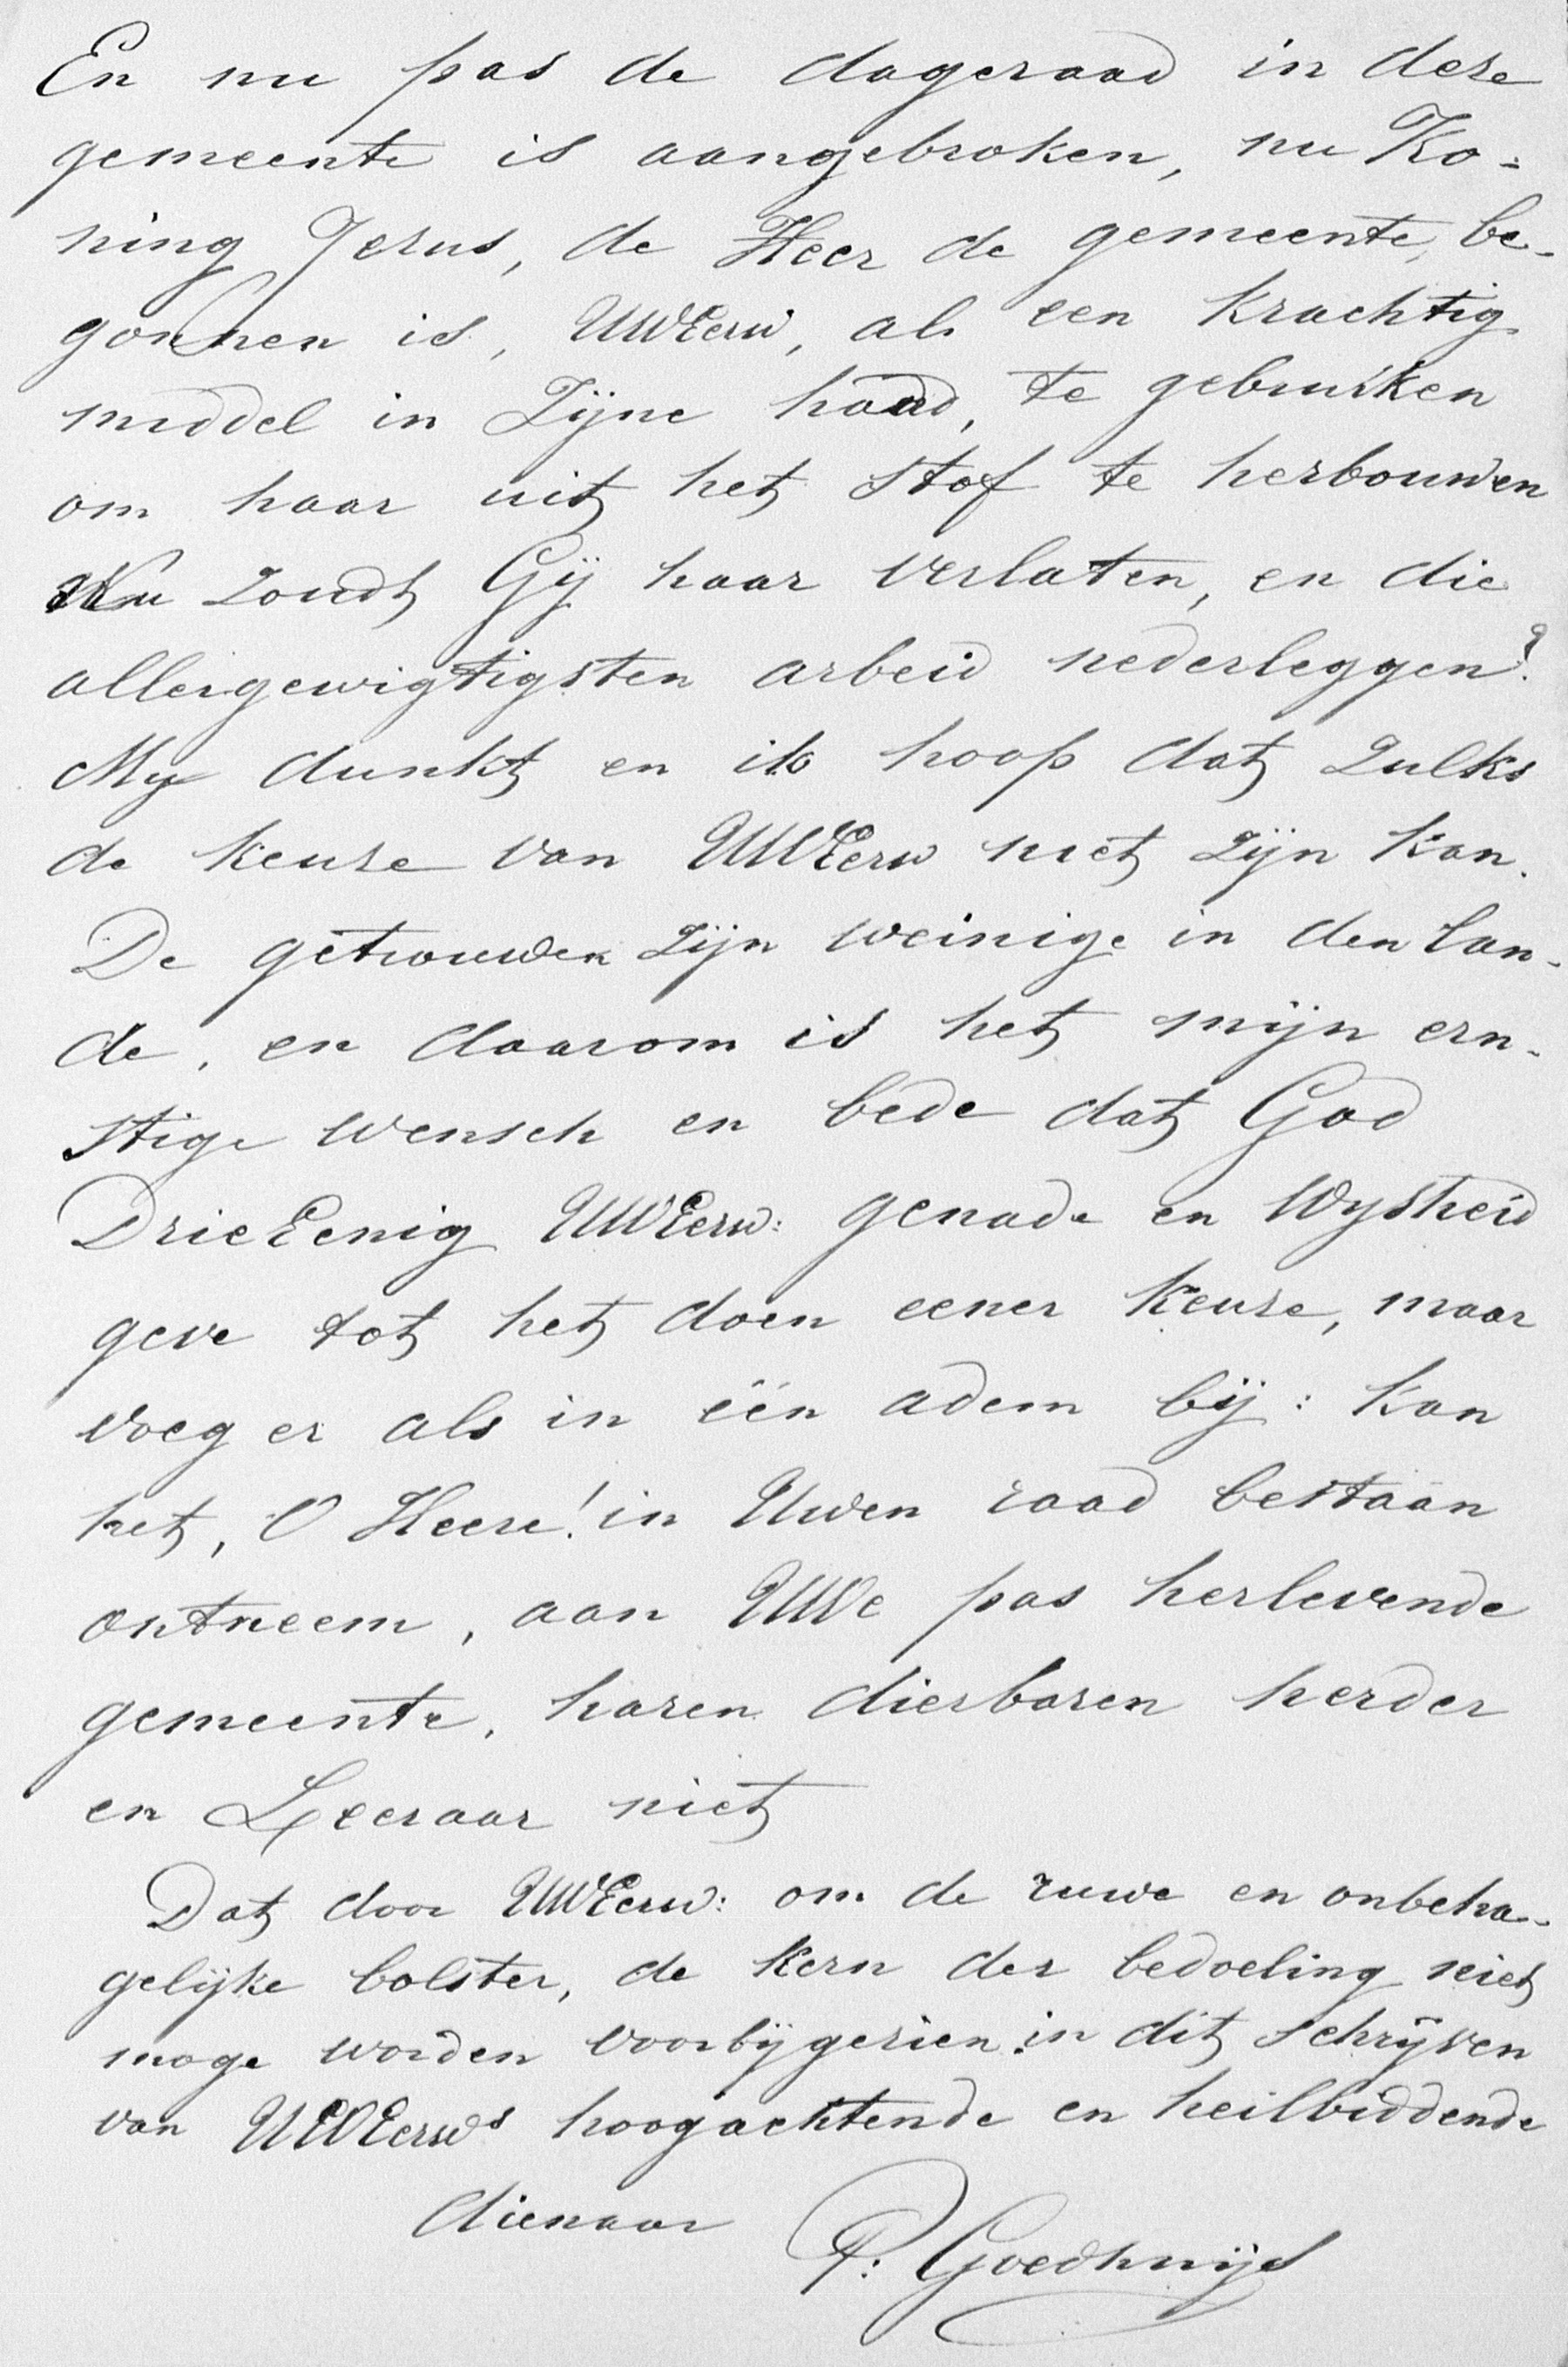 En nu pas de dageraad in deze
gemeente is aangebroken, nu Ko-
ning Jezus, de Heer de gemeente, be-
gonnen is, UWEerw, als een krachtig
middel in Zijne hand, te gebruiken
om haar uit het stof te herbouwen
Nu zoudt Gij haar verlaten, en die
allergewigtigsten arbeid nederleggen?
My dunkt en ik hoop dat zulks
de keuze van UWEerw niet zijn kan.
De getrouwen zijn weinige in den lan-
de, en daarom is het mijn ern-
stige wensch en bede dat God
DrieEenig UWEerw: genade en wysheid
geve tot het doen eener keuze, maar
voeg er als in één adem bij: kan
het, O Heere! in Uwen raad bestaan
ontneem, aan UWe pas herlevende
gemeente, haren dierbaren herder
en Leeraar niet
Dat door UWEerw: om de ruwe en onbeha-
gelijke bolster, de kern der bedoeling niet
moge worden voorbijgezien in dit schrijven
van UWEerws hoogachtende en heilbiddende
dienaar P: Goedhuijs